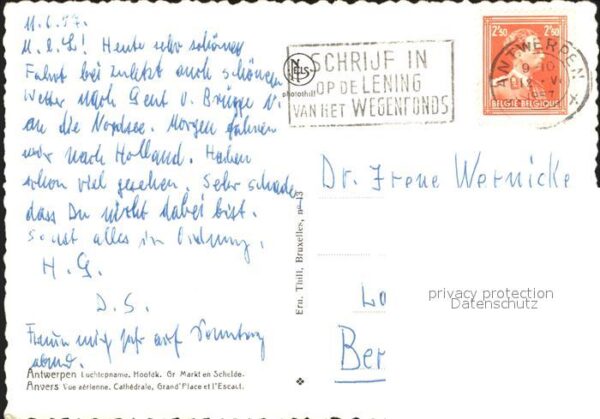 11.6.57.
M. L. L! Heute sehr schöne
Fahrt bei zuletzt auch schönem
Wetter nach Gent u. Brügge
an die Nordsee. Morgen fahren
wir nach Holland. Haben
schon viel gesehen. Sehr schade
dass Du nicht dabei bist.
Sonst alles in Ordnung.
H. G.
D. S.
Freue mich sehr auf Sonntag
abend.
Antwerpen Luchtopname. Hoofdk. Gr. Markt en Schelde.
Anvers Vue aérienne. Cathédrale, Grand'Place et l'Escaut.
NELS
photothill
Ern. Thill, Bruxelles, nº 13
SCHRIJF IN
OP DE LENING
VAN HET WEGENFONDS
2F50 2F50
BELGIE BELGIQUE
ANTWERPEN X
Dr. Irene Wernicke
Ber
privacy protection
Datenschutz